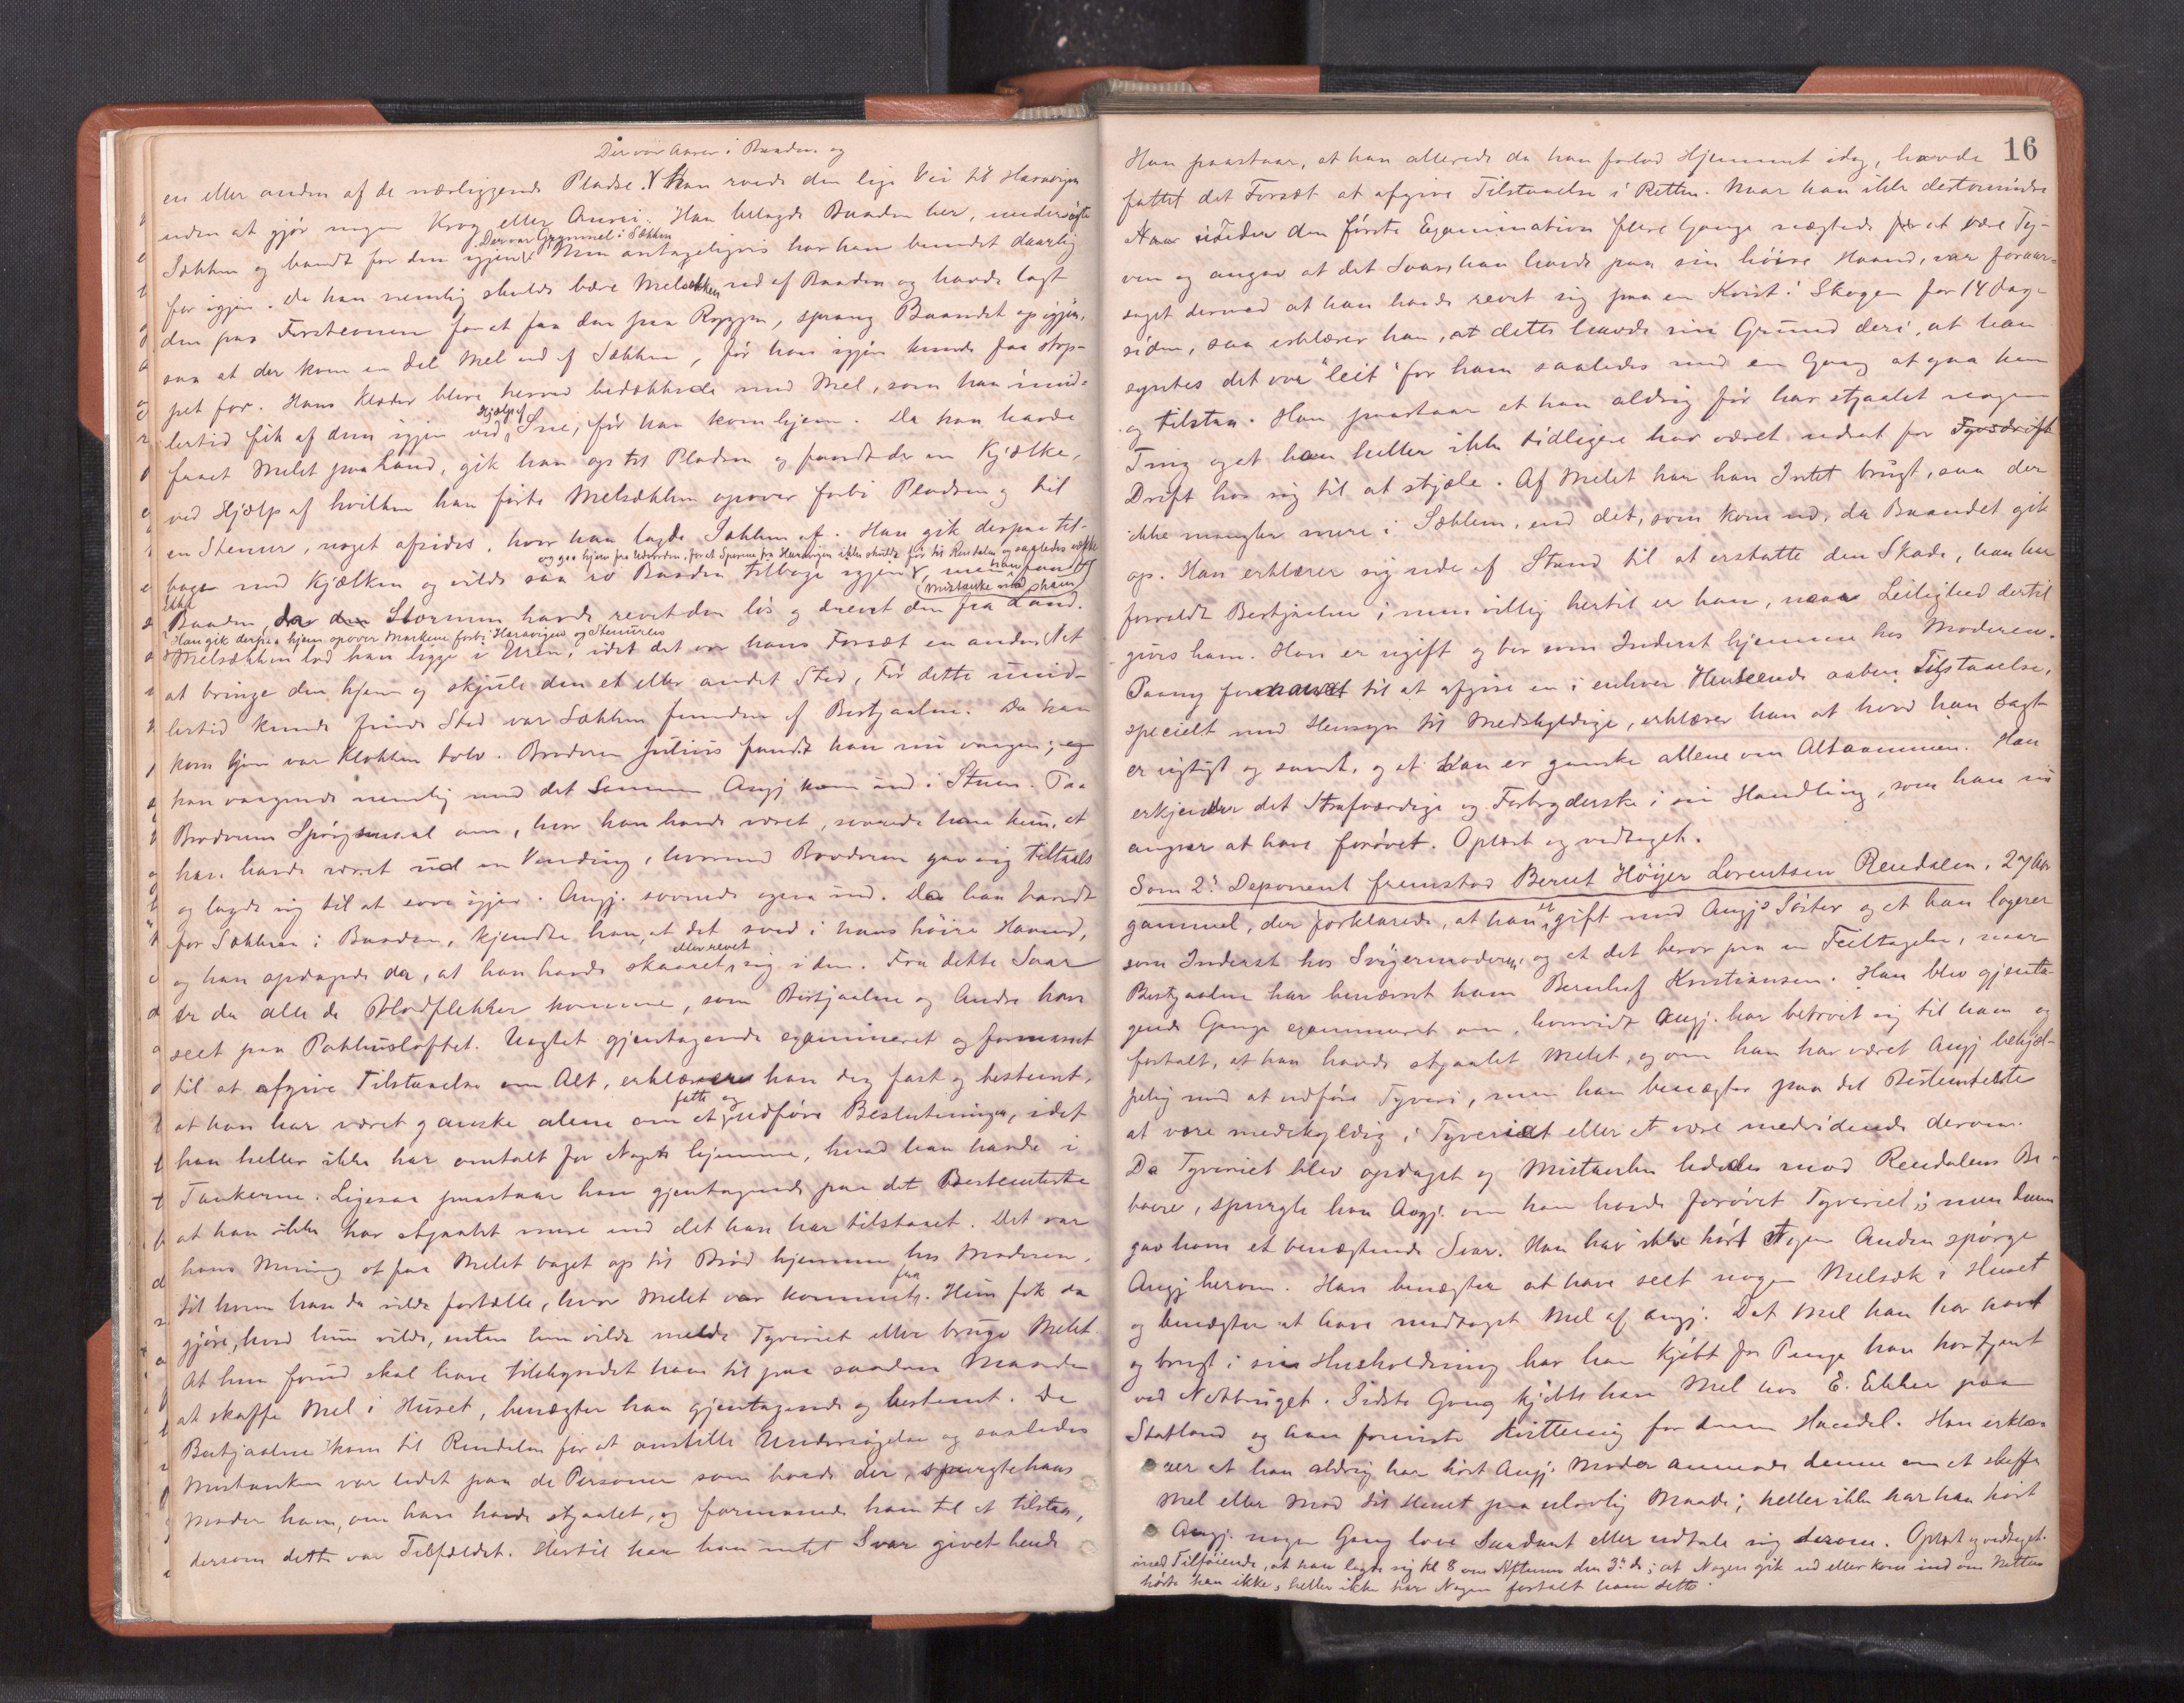 Der var Aarer i Baaden og
en eller anden af de nærliggende Pladse. Han roede den lige Vei til Haravigen
uden at gjør nogen Krog eller Omvei. Han belagde Baaden her, undersøgte
Der var Grynmel i Sækken
Sækken og bandt for den igjen. Men antageligvis har han bundet daarlig
for igjen. Da han nemlig skulde bære Melsækken ud af Baaden og havde lagt
den paa Forstevnen for at faa den paa Ryggen, sprang Baandet op igjen,
saa at der kom en Del Mel ud af Sækken, før han igjen kunde faa stop-
pet for. Hans Klæder bleve herved bedækkede med Mel, som han imid-
lertid fik af dem igjen ved Hjælp af Sne, før han kom hjem. Da han havde
faaet Melet paa Land, gik han op til Pladsen og fandt der en Kjælke,
ved Hjælp af hvilken han førte Melsækken opover forbi Pladsen og til
en Stenur, noget afsides, hvor han lagde Sækken af. Han gik derpaa til-
og gaa hjem fra Udvorden, for at Sporene fra Haravigen ikke skulde før til Rendalen og saaledes vække
bage med Kjælken og vilde saa ro Baaden tilbage igjen, men han fandt
(Mistanke mod ham)
ikke
Baaden, da den Stormen havde revet den løs og drevet den fra Land.
Han gik derpaa hjem opover Markene forbi Haravigen og Stenuren
Melsækken lod han ligge i Uren, idet det var hans Forsæt en anden Nat
at bringe den hjem og skjule den et eller andet Sted, Før dette imid-
lertid kunde finde Sted var Sækken funden af Bestjaalne. Da han
kom hjem var Klokken tolv. Broderen Julius fandt han nu vaagen; og
han vaagnede nemlig med det Samme Angj kom ind i Stuen. Paa
Broderens Spørgsmaal om, hvor han havde været, svarede han kun, at
han havde været ud en Vending, hvormed Broderen gav sig tiltaals
og lagde sig til at sove igjen. Angj. sovnede ogsaa ind. Da han bandt
for Sækken i Baaden, kjendte han, at det sved i hans høire Haand,
eller revet
og han opdagede da, at han havde skaaret sig i den. Fra dette Saar
er da alle de Blodflekker komne, som Bestjaalne og Andre have
seet paa Pakhusloftet. Uagtet gjentagende examineret og formanet
til at afgive Tilstaaelse om Alt, erklærer han dog fast og bestemt,
fatte og
at han har været ganske alene om at udføre Beslutningen, idet
han heller ikke har omtalt for Nogen hjemme, hvad han havde i
Tankerne. Ligesaa paastaar han gjentagende paa det Bestemteste
at han ikke har stjaalet mere end det han har tilstaaet. Det var
hans Mening at faa Melet baget op til Brød hjemme hos Moderen,
til hvem han da vilde fortælle, hvor Melet var kommet fra. Hun fik da
gjøre, hvad hun vilde, enten hun vilde melde Tyveriet eller bruge Melet.
At hun forud skal have tilskyndet ham til paa saadan Maade
at skaffe Mel i Huset, benægter han gjentagende og bestemt. Da
Bestjaalne kom til Rendalen for at anstille Undersøgelse og saaledes
Mistanken var ledet paa de Personer som boede der, spurgte hans
Moder ham, om han havde stjaalet, og formanede ham til at tilstaa,
dersom dette var Tilfældet. Hertil har han intet Svar givet hende
16
Han paastaar, at han allerede da han forlod Hjemmet idag, havde
fattet det Forsæt at afgive Tilstaaelse i Retten. Naar han ikke destomindre
under den første Examination flere Gange nægtede at være Ty-
ven og angav at det Saar han havde paa sin høire Haand, var foraar-
saget derved at han havde revet sig paa en Kvist i Skogen for 14 Dage
siden, saa erklærer han, at dette havde sin Grund deri, at han
syntes det var "leit" for ham saaledes med en Gang at gaa hen
og tilstaa. Han paastaar at han aldrig før har stjaalet nogen
Ting og at han heller ikke tidligere har været udsat for Tyvsdrift
Drift hos sig til at stjæle. Af Melet har han Intet brugt, saa der
ikke mangler mere i Sækken, end det, som kom ud, da Baandet gik
op. Han erklærer sig ude af Stand til at erstatte den Skade, han har
forvoldt Bestjaalne; men villig hertil er han, naar Leilighed dertil
gives ham. Han er ugift og bor som Inderst hjemme hos Moderen.
Paany formanet til at afgive en i enhver Henseende aaben Tilstaaelse,
specielt med Hensyn til Medskyldige, erklærer han at hvad han sagt
er rigtigt og sandt, og at han er ganske allene om Altsammen. Han
erkjender det Strafværdige og Forbryderske i sin Handling, som han nu
angrer at have forøvet. Oplæst og vedtaget.
Som 2n Deponent fremstod Bernt Høyer Lorentsen Rendalen, 27 Aar
gammel, der forklarede, at han er gift med Angj's Søster og at han logerer
som Inderst hos Svigermoderen, og at det beror paa en Feiltagelse, naar
Bestjaalne har benævnt ham Bernhof Kristiansen. Han blev gjenta-
gende Gange examineret om, hvorvidt Angj. har betroet sig til ham og
fortalt, at han havde stjaalet Melet, og om han har været Angj behjæl-
pelig med at udføre Tyveri, men han benægter paa det Bestemteste
at være medskyldig i Tyveriet eller at være medvidende derom.
Da Tyveriet blev opdaget og Mistanken lededes mod Rendalens Be-
boere, spurgte han Angj. om han havde forøvet Tyveriet; men denne
gav ham et benægtende Svar. Han har ikke hørt Nogen Anden spørge
Angj herom. Han benægter at have seet nogen Melsæk i Huset
og benægter at have modtaget Mel af Angj. Det Mel han har havt
og brugt i sin Husholdning har han kjøbt for Penge han har tjent
ved Notbruget. Sidste Gang kjøbte han Mel hos E. Ekker paa
Statland og han foreviste Kvittering for denne Handel. Han erklæ-
rer at han aldrig har hørt Angj. Moder anmode denne om at skaffe
Mel eller Mad til Huset paa ulovlig Maade; heller ikke har han hørt
Angj. nogen Gang love Saadant eller udtale sig derom. Oplæst og vedtaget
med Tilføiende, at han lagde sig Kl 8 om Aftenen den 3die ds; at Nogen gik ud eller kom ind om Natten
hørte han ikke, heller ikke har Nogen fortalt ham dette.